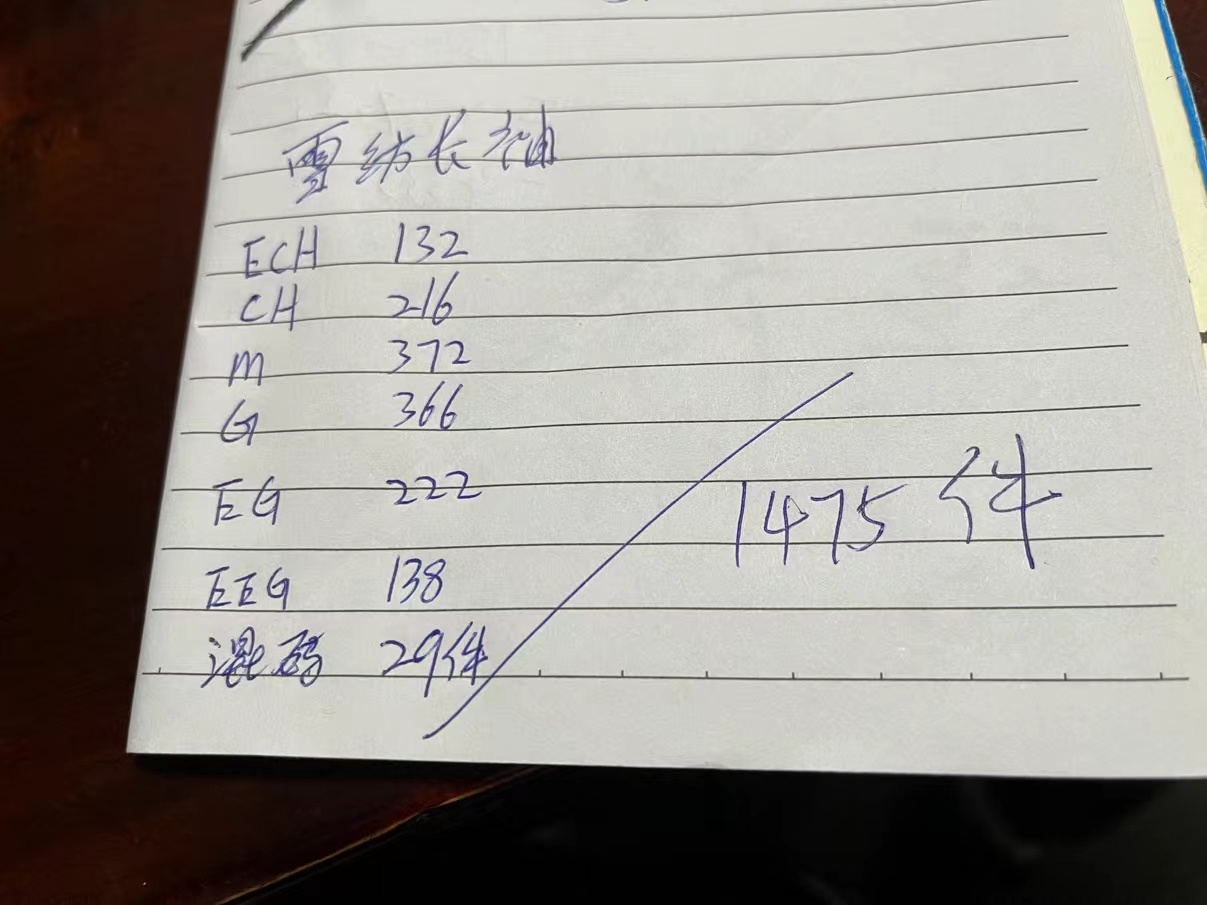 雪纺长袖
ECH 132
CH 216
M 372
G 366
EG 222
EEG 138
混码 29件
1475件